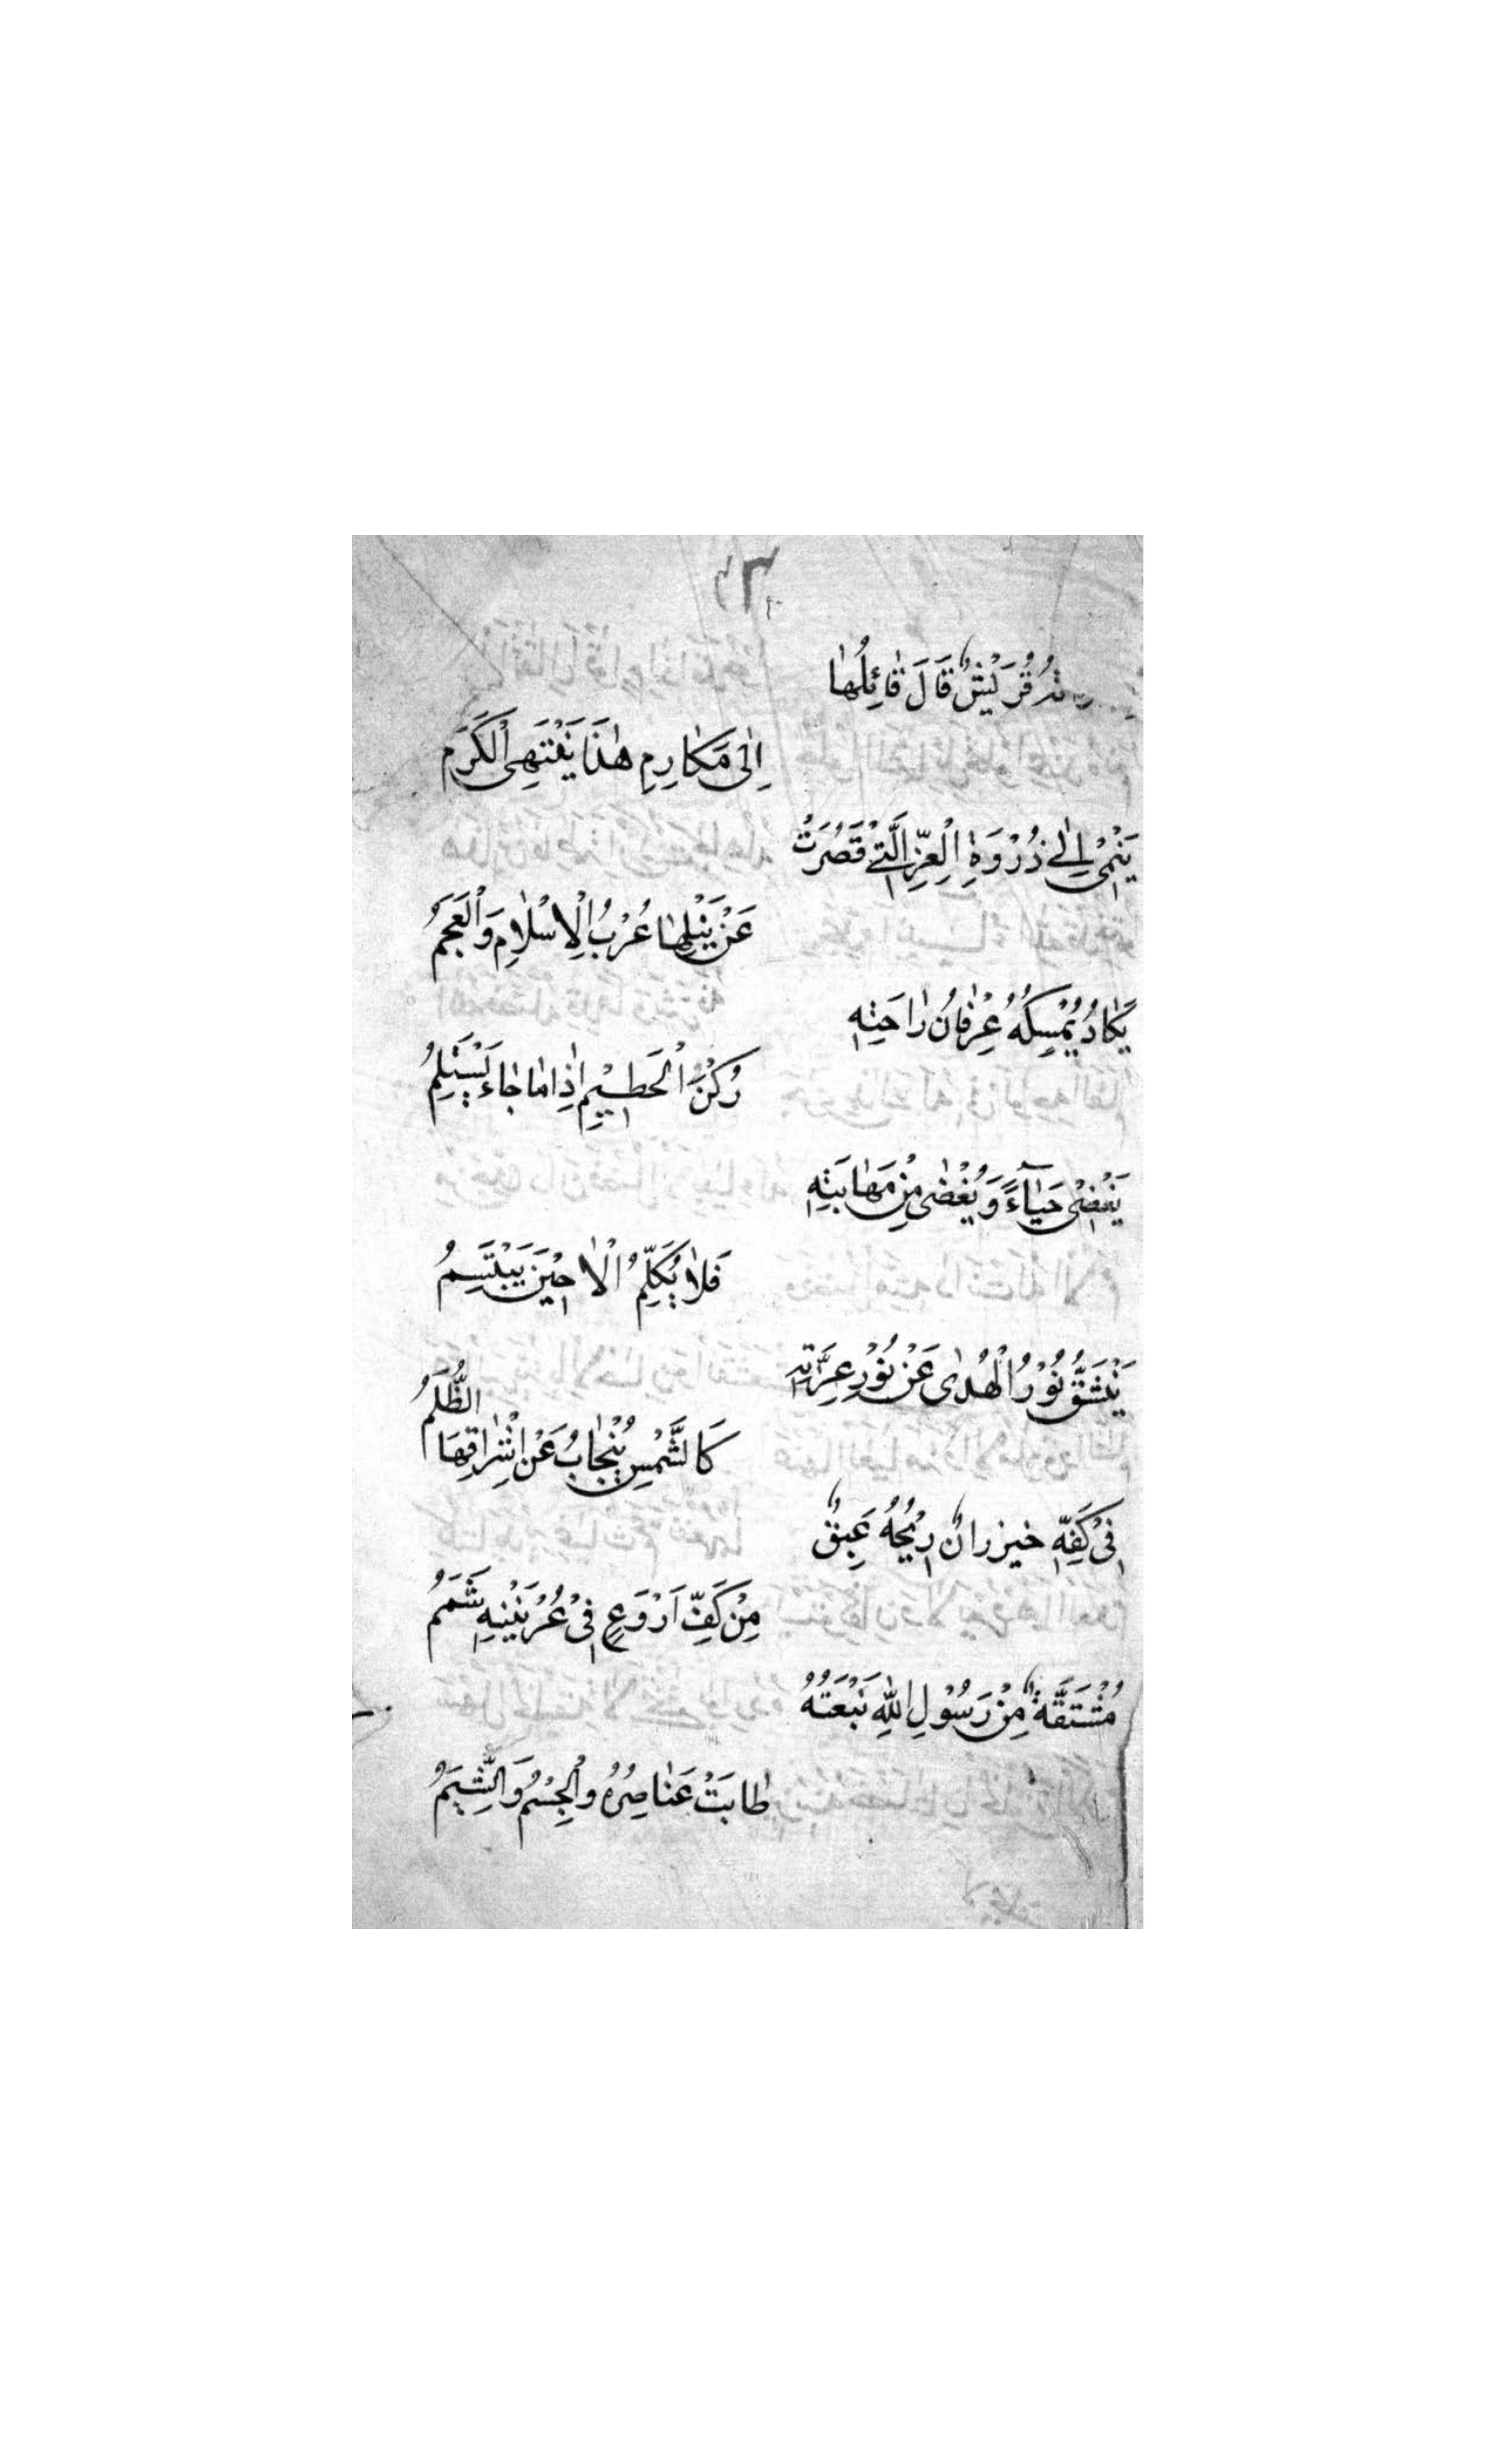 قُرَيْشٌ قَالَ قَائِلُهَا
اِلٰى مَكَارِمِ هٰذَا يَنْتَهِى الْكَرَمُ
يَنْمِىْ اِلٰى ذُرْوَةِ الْعِزِّ الَّتِىْ قَصُرَتْ
عَنْ نَيْلِهَا عُرْبُ الْاِسْلَامِ وَالْعَجَمُ
يَكَادُ يُمْسِكُهُ عِرْفَانُ رَاحَتِهِ
رُكْنَ الْحَطِيْمِ اِذَا مَا جَاءَ يَسْتَلِمُ
يُغْضِىْ حَيَآءً وَيُغْضٰى مِنْ مَهَابَتِهِ
فَلَا يُكَلَّمُ اِلَّا حِيْنَ يَبْتَسِمُ
يَنْشَقُّ نُوْرُ الْهُدٰى عَنْ نُوْرِ غُرَّتِهِ
كَالشَّمْسِ يَنْجَابُ عَنْ اِشْرَاقِهَا الظُّلَمُ
فِىْ كَفِّهِ خيزرانٌ رِيْحُهُ عَبِقٌ
مِنْ كَفِّ اَرْوَعَ فِىْ عِرْنِيْنِهِ شَمَمُ
مُشْتَقَّةٌ مِنْ رَسُوْلِ اللّٰهِ نَبْعَتُهُ
طَابَتْ عَنَاصِرُهُ وَالْجِسْمُ وَالشِّيَمُ